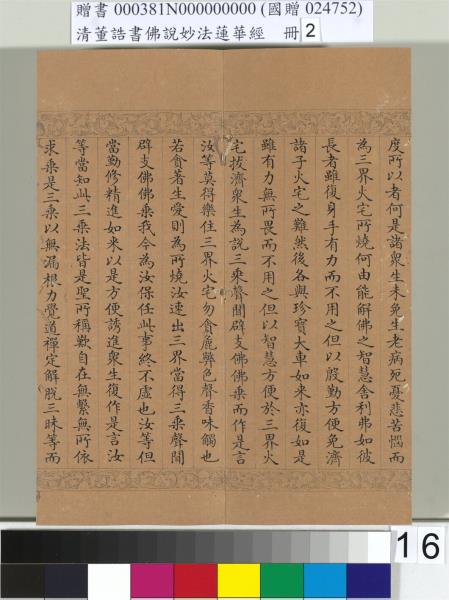 贈書 000381N000000000 (國贈 024752)
清董誥書佛說妙法蓮華經 冊 2
度所以者何是諸眾生未免生老病死憂悲苦惱而
為三界火宅所燒何由能解佛之智慧舍利弗如彼
長者雖復身手有力而不用之但以殷勤方便免濟
諸子火宅之難然後各與珍寶大車如來亦復如是
雖有力無所畏而不用之但以智慧方便於三界火
宅拔濟眾生為說三乘聲聞辟支佛佛乘而作是言
汝等莫得樂住三界火宅勿貪麁弊色聲香味觸也
若貪著生愛則為所燒汝速出三界當得三乘聲聞
辟支佛佛乘我今為汝保任此事終不虛也汝等但
當勤修精進如來以是方便誘進眾生復作是言汝
等當知此三乘法皆是聖所稱歎自在無繫無所依
求乘是三乘以無漏根力覺道禪定解脫三昧等而
16